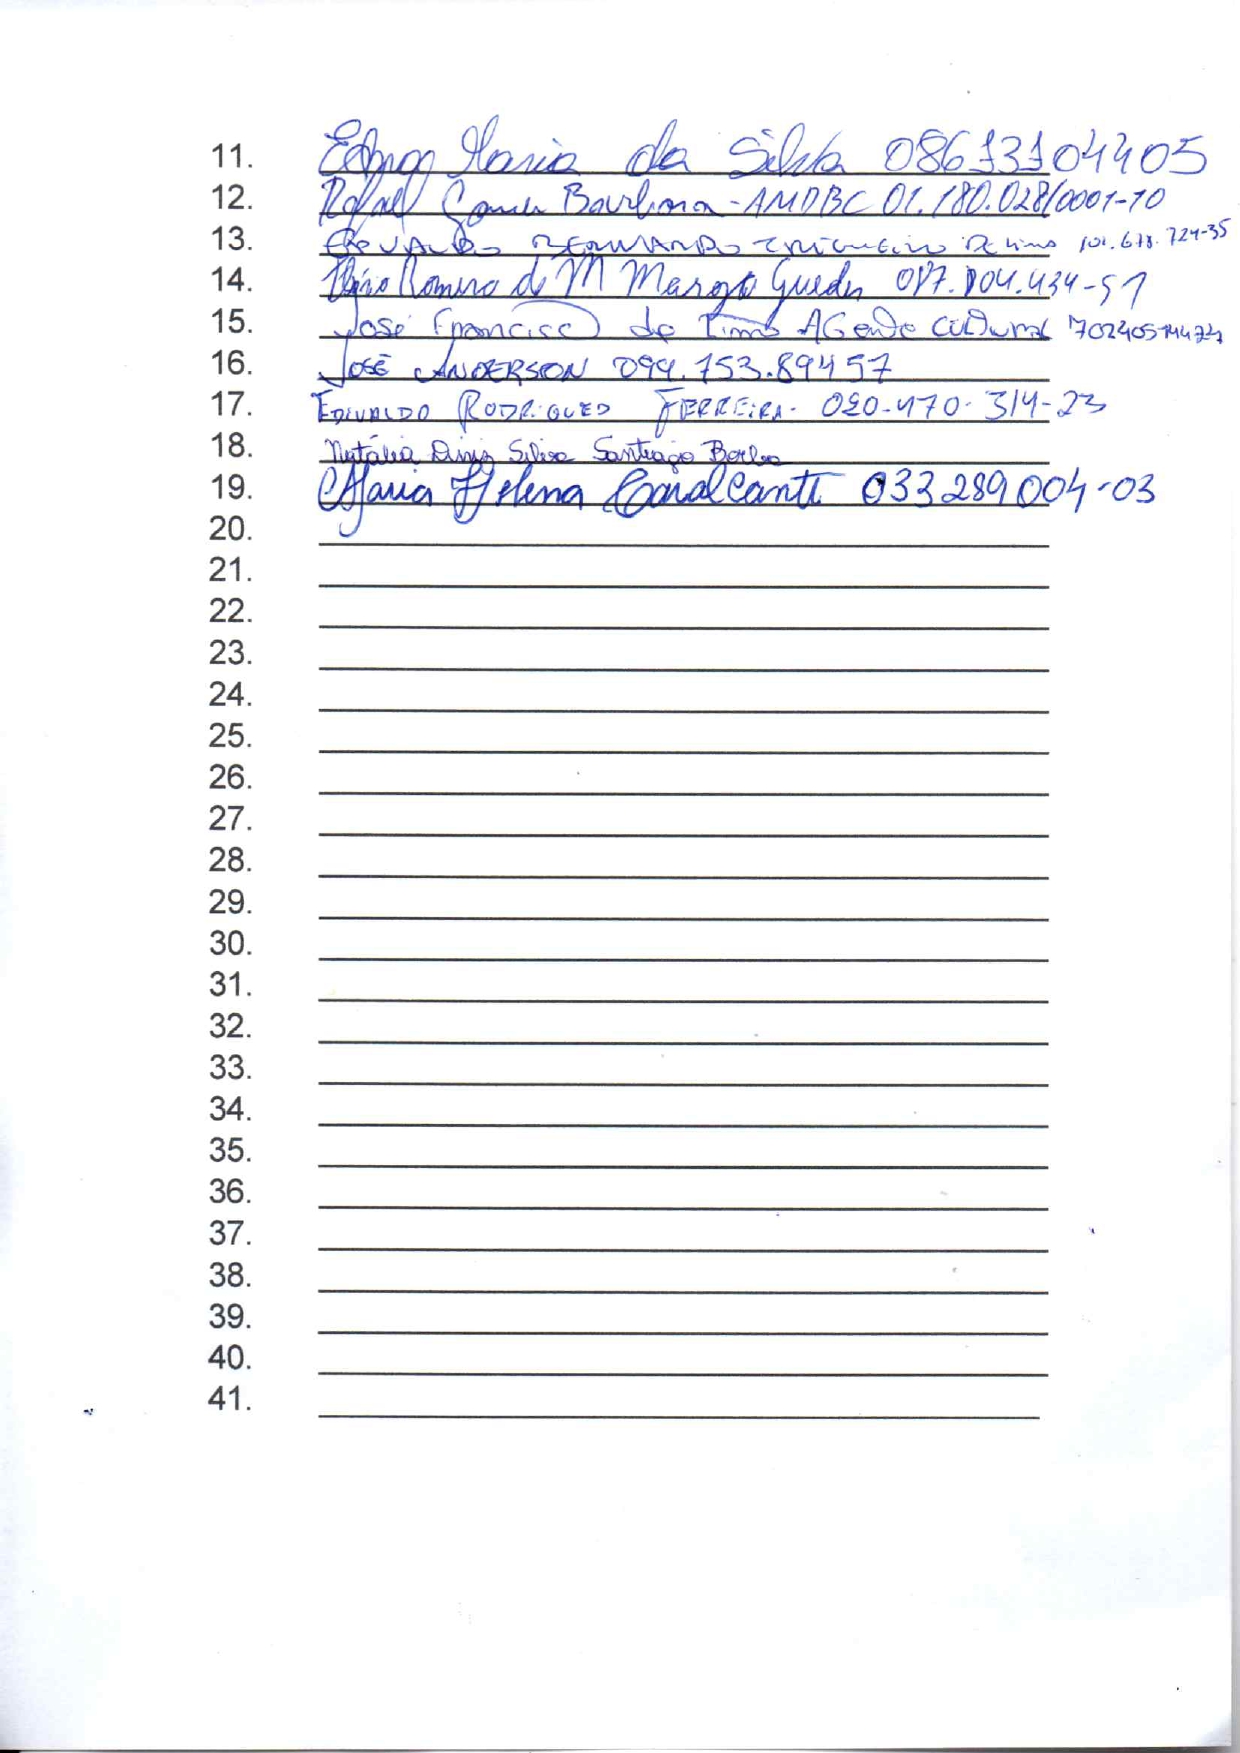 11. Edna Maria da Silva 08613104405
12. Rafael Gomes Barbosa - AMDBC 01.180.028/0001-10
13. de Lima 101.678.724-35
14. Romero de M Margo Guedes 087.104.434-51
15. José Francisco de Lima AGente Cultural
16. JOSÉ ANDERSON 099.153.89457
17. EDIVALDO RODRIGUES FERREIRA - 020-470-314-23
18. Natália Diniz Silva Santiago Borba
19. Maria Helena Cavalcanti 033289004-03
20.
21.
22.
23.
24.
25.
26.
27.
28.
29.
30.
31.
32.
33.
34.
35.
36.
37.
38.
39.
40.
41.